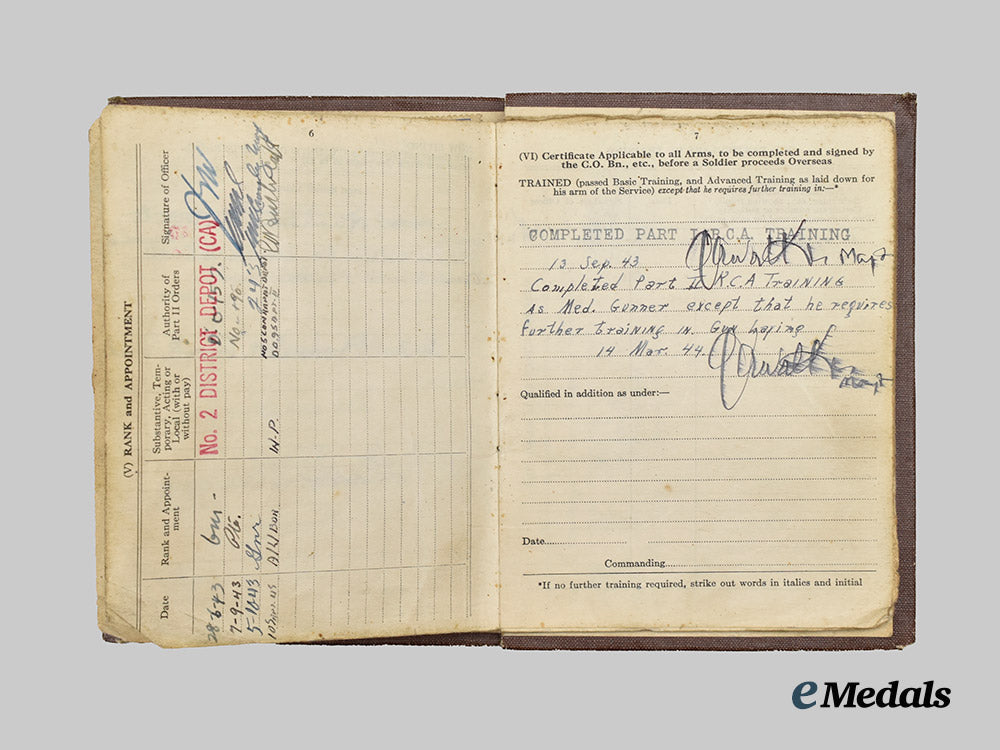 6
(V) RANK and APPOINTMENT
Date
Rank and Appoint-
ment
Substantive, Tem-
porary, Acting or
Local (with or
without pay)
Authority of
Part II Orders
Signature of Officer
28-6-43 Gnr - No. 2 DISTRICT DEPOT (CA)
7-9-43 Pte. No. 196
5-10-43 Gnr
A/L/BDR W.P.
7
(VI) Certificate Applicable to all Arms, to be completed and signed by
the C.O. Bn., etc., before a Soldier proceeds Overseas
TRAINED (passed Basic Training, and Advanced Training as laid down for
his arm of the Service) except that he requires further training in:—*
COMPLETED PART I R.C.A. TRAINING
13 Sep. 43. Maj
Completed Part II R.C.A Training
As Med. Gunner except that he requires
further training in Gun Laying
14 Mar. 44. Maj
Qualified in addition as under:—
Date
Commanding
*If no further training required, strike out words in italics and initial
eMedals